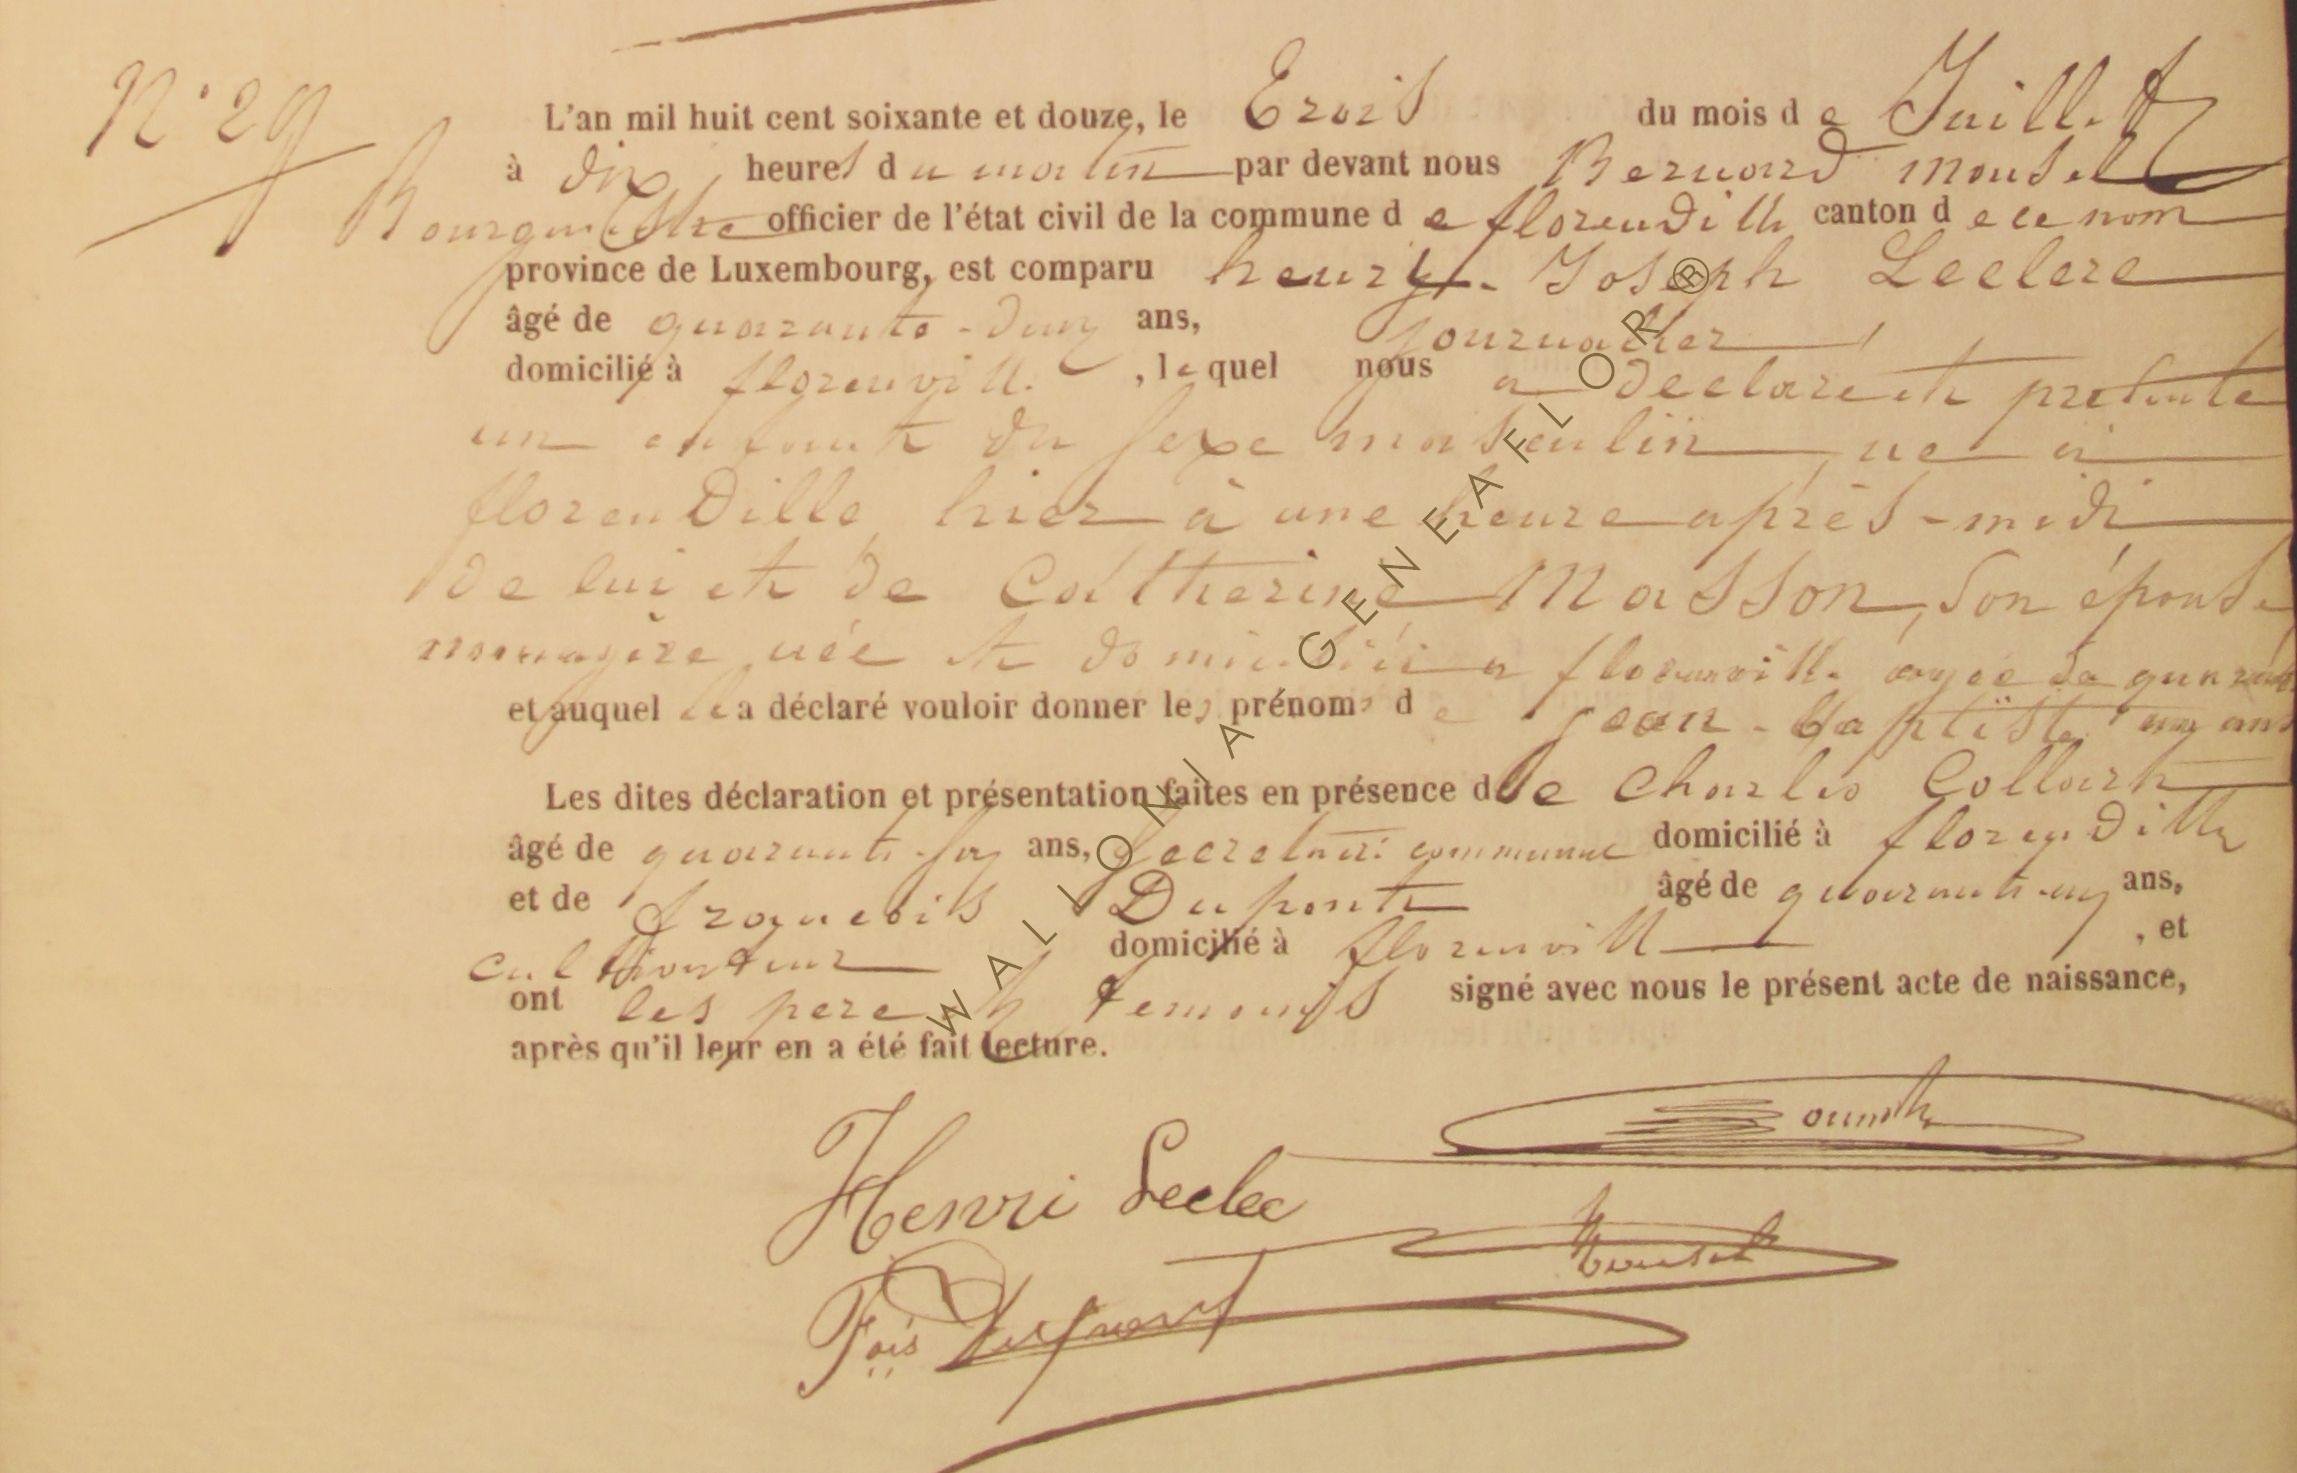 N° 29
L'an mil huit cent soixante et douze, le Trois du mois de Juillet
à dix heures du matin par devant nous Bernard Mousel
Bourgmestre officier de l'état civil de la commune de florenville canton de ce nom
province de Luxembourg, est comparu henry-Joseph Leclerc
âgé de quarante-deux ans, journalier
domicilié à florenville, lequel nous a declaré et presenté
un enfant du sexe masculin, né à
florenville, hier à une heure après-midi
de lui et de Catherine Masson, son épouse
menagère née et domiciliée a florenville agée de quarante
et auquel il a déclaré vouloir donner les prénoms de jean-baptiste ans
Les dites déclaration et présentation faites en présence de Charles Collart
âgé de quarante-six ans, secretaire communal domicilié à florenville
et de françois Dupont âgé de quarante-un ans,
cultivateur domicilié à florenville, et
ont les pere et temoins signé avec nous le présent acte de naissance,
après qu'il leur en a été fait lecture.
Henri Leclec
Mousel
Fois Dupont
WALLONIA GENEAFLOR ®